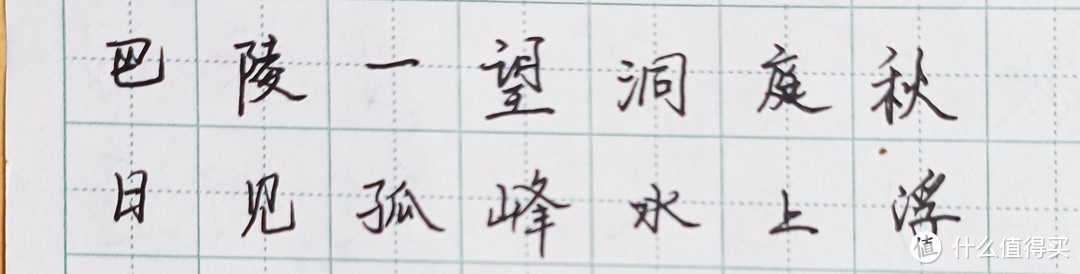 巴陵一望洞庭秋
日见孤峰水上浮
值 什么值得买